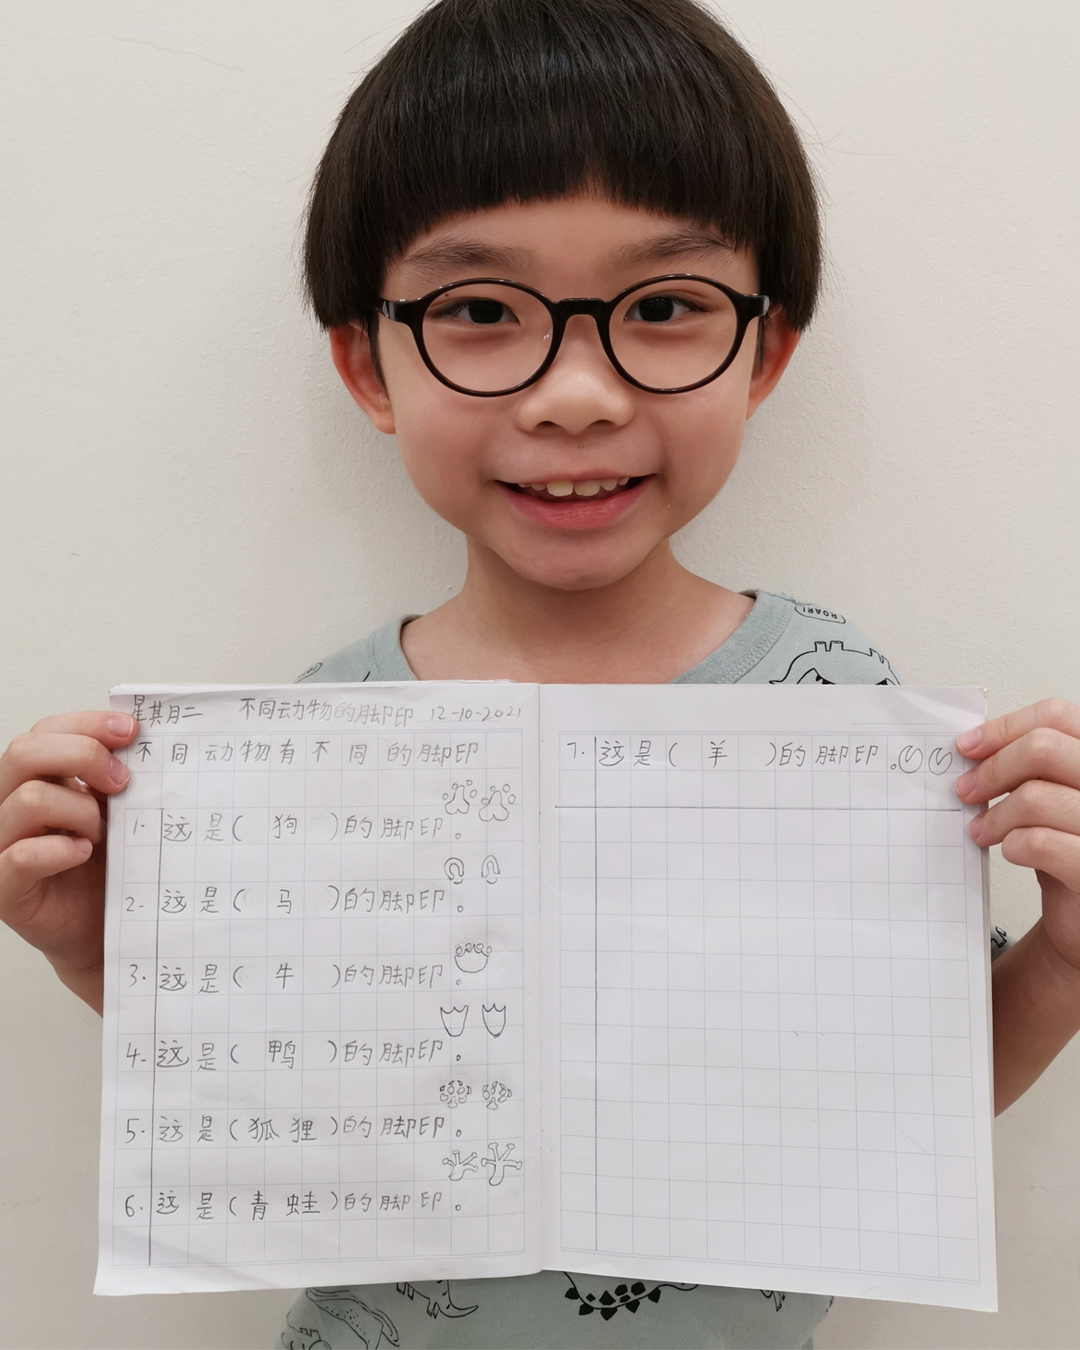 ROAR!
星其月二 不同动物的脚印 12-10-2021
不同动物有不同的脚印
1. 这是( 狗 )的脚印。
2. 这是( 马 )的脚印。
3. 这是( 牛 )的脚印。
4. 这是( 鸭 )的脚印。
5. 这是(狐狸)的脚印。
6. 这是(青蛙)的脚印。
7. 这是( 羊 )的脚印。